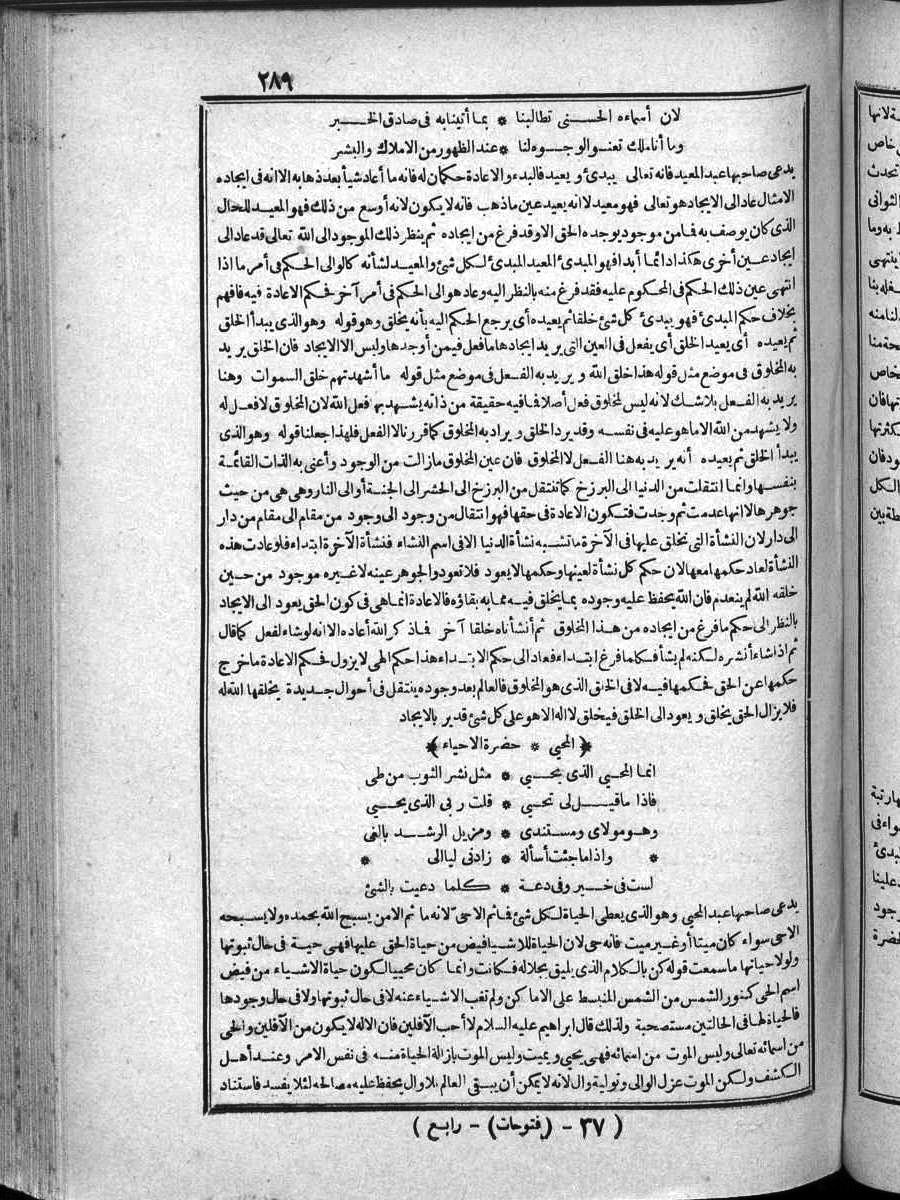 ٢٨٩
لان أسماءه الحسنى تطالبنا * بما أتينابه فى صادق الخبر
وما أنا ملك تعنو الوجوه لنا * عند الظهور من الاملاك والبشر
يدعى صاحبها عبد المعيد فانه تعالى يبدئ ويعيد فالبدء والاعادة حكمان له فانه ما أعاد شيأ بعد ذهابه الاانه فى ايجاده
الامثال عاد الى الايجاد هو تعالى فهو معيد لا انه يعيد عين ما ذهب فانه لا يكون لانه أوسع من ذلك فهو المعيد للحال
الذى كان يوصف به فما من موجود يوجده الحق الا وقد فرغ من ايجاده ثم ينظر ذلك الموجود الى الله تعالى قد عاد الى
ايجاد عين أخرى هكذا دائما أبدا فهو المبدئ المعيد المبدئ لكل شئ والمعيد لشأنه كالوالى الحكم فى أمر ما اذا
انتهى عين ذلك الحكم فى المحكوم عليه فقد فرغ منه بالنظر اليه وعاد هو الى الحكم فى أمر آخر فحكم الاعادة فيه فافهم
بخلاف حكم المبدئ فهو يبدئ كل شئ خلقا ثم يعيده أى يرجع الحكم اليه بأنه يخلق وهو قوله وهو الذى يبدأ الخلق
ثم يعيده أى يعيد الخلق أى يفعل فى العين التى يريد ايجادها ما فعل فيمن أوجدها وليس الا الايجاد فان الخلق يريد
به المخلوق فى موضع مثل قوله هذا خلق الله ويريد به الفعل فى موضع مثل قوله ما أشهدتهم خلق السموات وهنا
يريد به الفعل بلا شك لانه ليس لمخلوق فعل أصلا فما فيه حقيقة من ذاته يشهد بها فعل الله لان المخلوق لا فعل له
ولا يشهد من الله الا ما هو عليه فى نفسه وقد يرد الخلق ويراد به المخلوق كما قررنا لا الفعل فلهذا جعلنا قوله وهو الذى
يبدأ الخلق ثم يعيده أنه يريد به هنا الفعل لا المخلوق فان عين المخلوق ما زالت من الوجود وأعنى به الذات القائمة
بنفسها وانما انتقلت من الدنيا الى البرزخ كما تنتقل من البرزخ الى الحشر الى الجنة أو الى النار وهى هى من حيث
جوهرها لا انها عدمت ثم وجدت فتكون الاعادة فى حقها فهو انتقال من وجود الى وجود من مقام الى مقام من دار
الى دار لان النشأة التى تخلق عليها فى الآخرة ما تشبه نشأة الدنيا الا فى اسم النشاء فنشأة الآخرة ابتداء فلو عادت هذه
النشأة لعاد حكمها معها لان حكم كل نشأة لعينها وحكمها لا يعود فلا تعود والجوهر عينه لا غيره موجود من حين
خلقه الله لم ينعدم فان الله يحفظ عليه وجوده بما يخلق فيه مما به بقاؤه فالاعادة انما هى فى كون الحق يعود الى الايجاد
بالنظر الى حكم ما فرغ من ايجاده من هذا المخلوق ثم أنشأناه خلقا آخر فما ذكر الله أعاده الاانه لو شاء لفعل كما قال
ثم اذا شاء أنشره لكنه لم يشأ فكما ما فرغ ابتداء فعاد الى حكم الابتداء هذا حكم الهى لا يزول فحكم الاعادة ما خرج
حكمها عن الحق فحكمها فيه لا فى الخلق الذى هو المخلوق فالعالم بعد وجوده ينتقل فى أحوال جديدة يخلقها الله له
فلا يزال الحق يخلق ويعود الى الخلق فيخلق لا اله الا هو على كل شئ قدير بالايجاد
﴿المحيى * حضرة الاحياء﴾
انما المحيى الذى يحيى * مثل نشر الثوب من طى
فاذا ما قيل لى تحيى * قلت ربى الذى يحيى
وهو مولاى ومستندى * ومزيل الرشد بالغى
* واذا ما جئت أسألة * زادنى ليا الى *
لست فى خير وفى دعة * كلما دعيت بالشئ
يدعى صاحبها عبد المحيى وهو الذى يعطى الحياة لكل شئ فما ثم الا حىّ لانه ما ثم الا من يسبح الله بحمده ولا يسبحه
الا حى سواء كان ميتا أو غير ميت فانه حى لان الحياة للاشياء فيض من حياة الحق عليها فهى حية فى حال ثبوتها
ولولا حياتها ما سمعت قوله كن بالكلام الذى يليق بجلاله فكانت وانما كان محييا لكون حياة الاشياء من فيض
اسم الحى كنور الشمس من الشمس المنبسط على الاماكن ولم تغب الاشياء عنه لا فى حال ثبوتها ولا فى حال وجودها
فالحياة لها فى الحالتين مستصحبة ولذلك قال ابراهيم عليه السلام لا أحب الآفلين فان الاله لا يكون من الآفلين والحى
من اسمائه تعالى وليس الموت من اسمائه فهى يحيى ويميت وليس الموت بازالة الحياة منه فى نفس الامر وعند أهل
الكشف ولكن الموت عزل الوالى وتولية وال لانه لا يمكن أن يبقى العالم بلا وال يحفظ عليه مصالحه لئلا يفسد فاستناد
( ٣٧ - (فتوحات) - رابع )